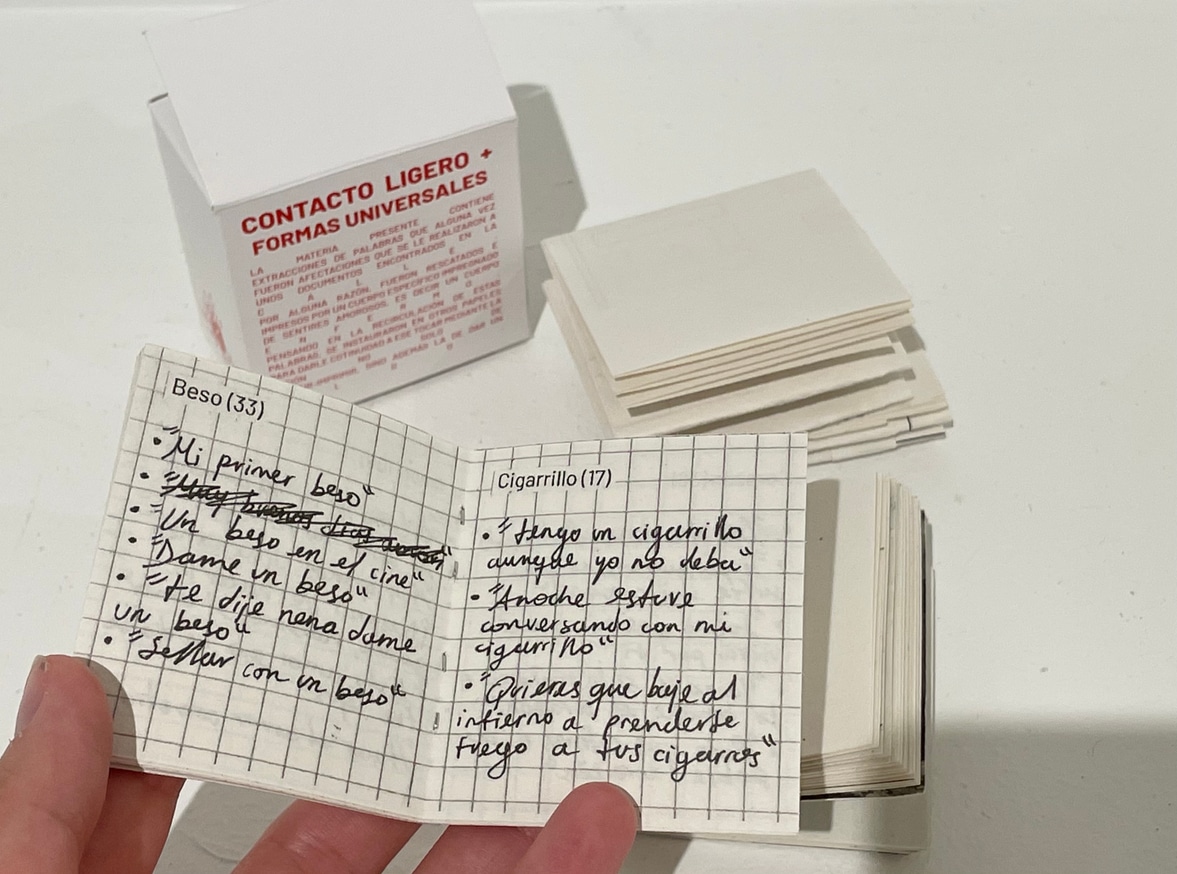 CONTACTO LIGERO +
FORMAS UNIVERSALES
LA MATERIA PRESENTE CONTIENE
EXTRACCIONES DE PALABRAS QUE ALGUNA VEZ
FUERON AFECTACIONES QUE SE LE REALIZARON A
UNOS DOCUMENTOS ENCONTRADOS EN LA
C A L L E
POR ALGUNA RAZÓN, FUERON RESCATADOS E
IMPRESOS POR UN CUERPO ESPECÍFICO IMPREGNADO
DE SENTIRES AMOROSOS, ES DECIR UN CUERPO
E N F E R M O
PENSANDO EN LA RECIRCULACIÓN DE ESTAS
PALABRAS, SE INSTAURARON EN OTROS PAPELES
PARA DARLE COTINUIDAD A ESE TOCAR MEDIANTE LA
NO SOLO DE DAR UN
IMPRIMIR, SINO ADEMÁS LA
Beso (33)
• "Mi primer beso"
• "Un beso en el cine"
• "Dame un beso"
• "te dije nena dame
un beso"
• "Sellar con un beso"
Cigarrillo (17)
• "tengo un cigarrillo
aunque yo no deba"
• "Anoche estuve
conversando con mi
cigarrillo"
• "Quieres que baje al
infierno a prenderle
fuego a tus cigarros"